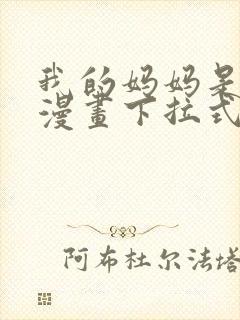 我的妈妈是
漫畫下拉式
阿布杜尔法塔